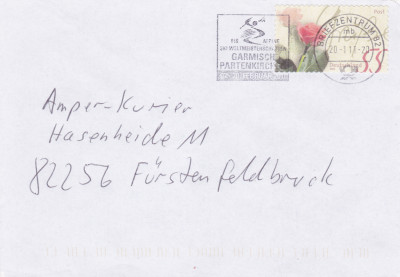 FIS ALPINE
SKI WELTMEISTERSCHAFTEN
GARMISCH
PARTENKIRCHEN
BRIEFZENTRUM 82
mb
55
Amper-Kurier
Hasenheide 11
82256 Fürstenfeldbruck